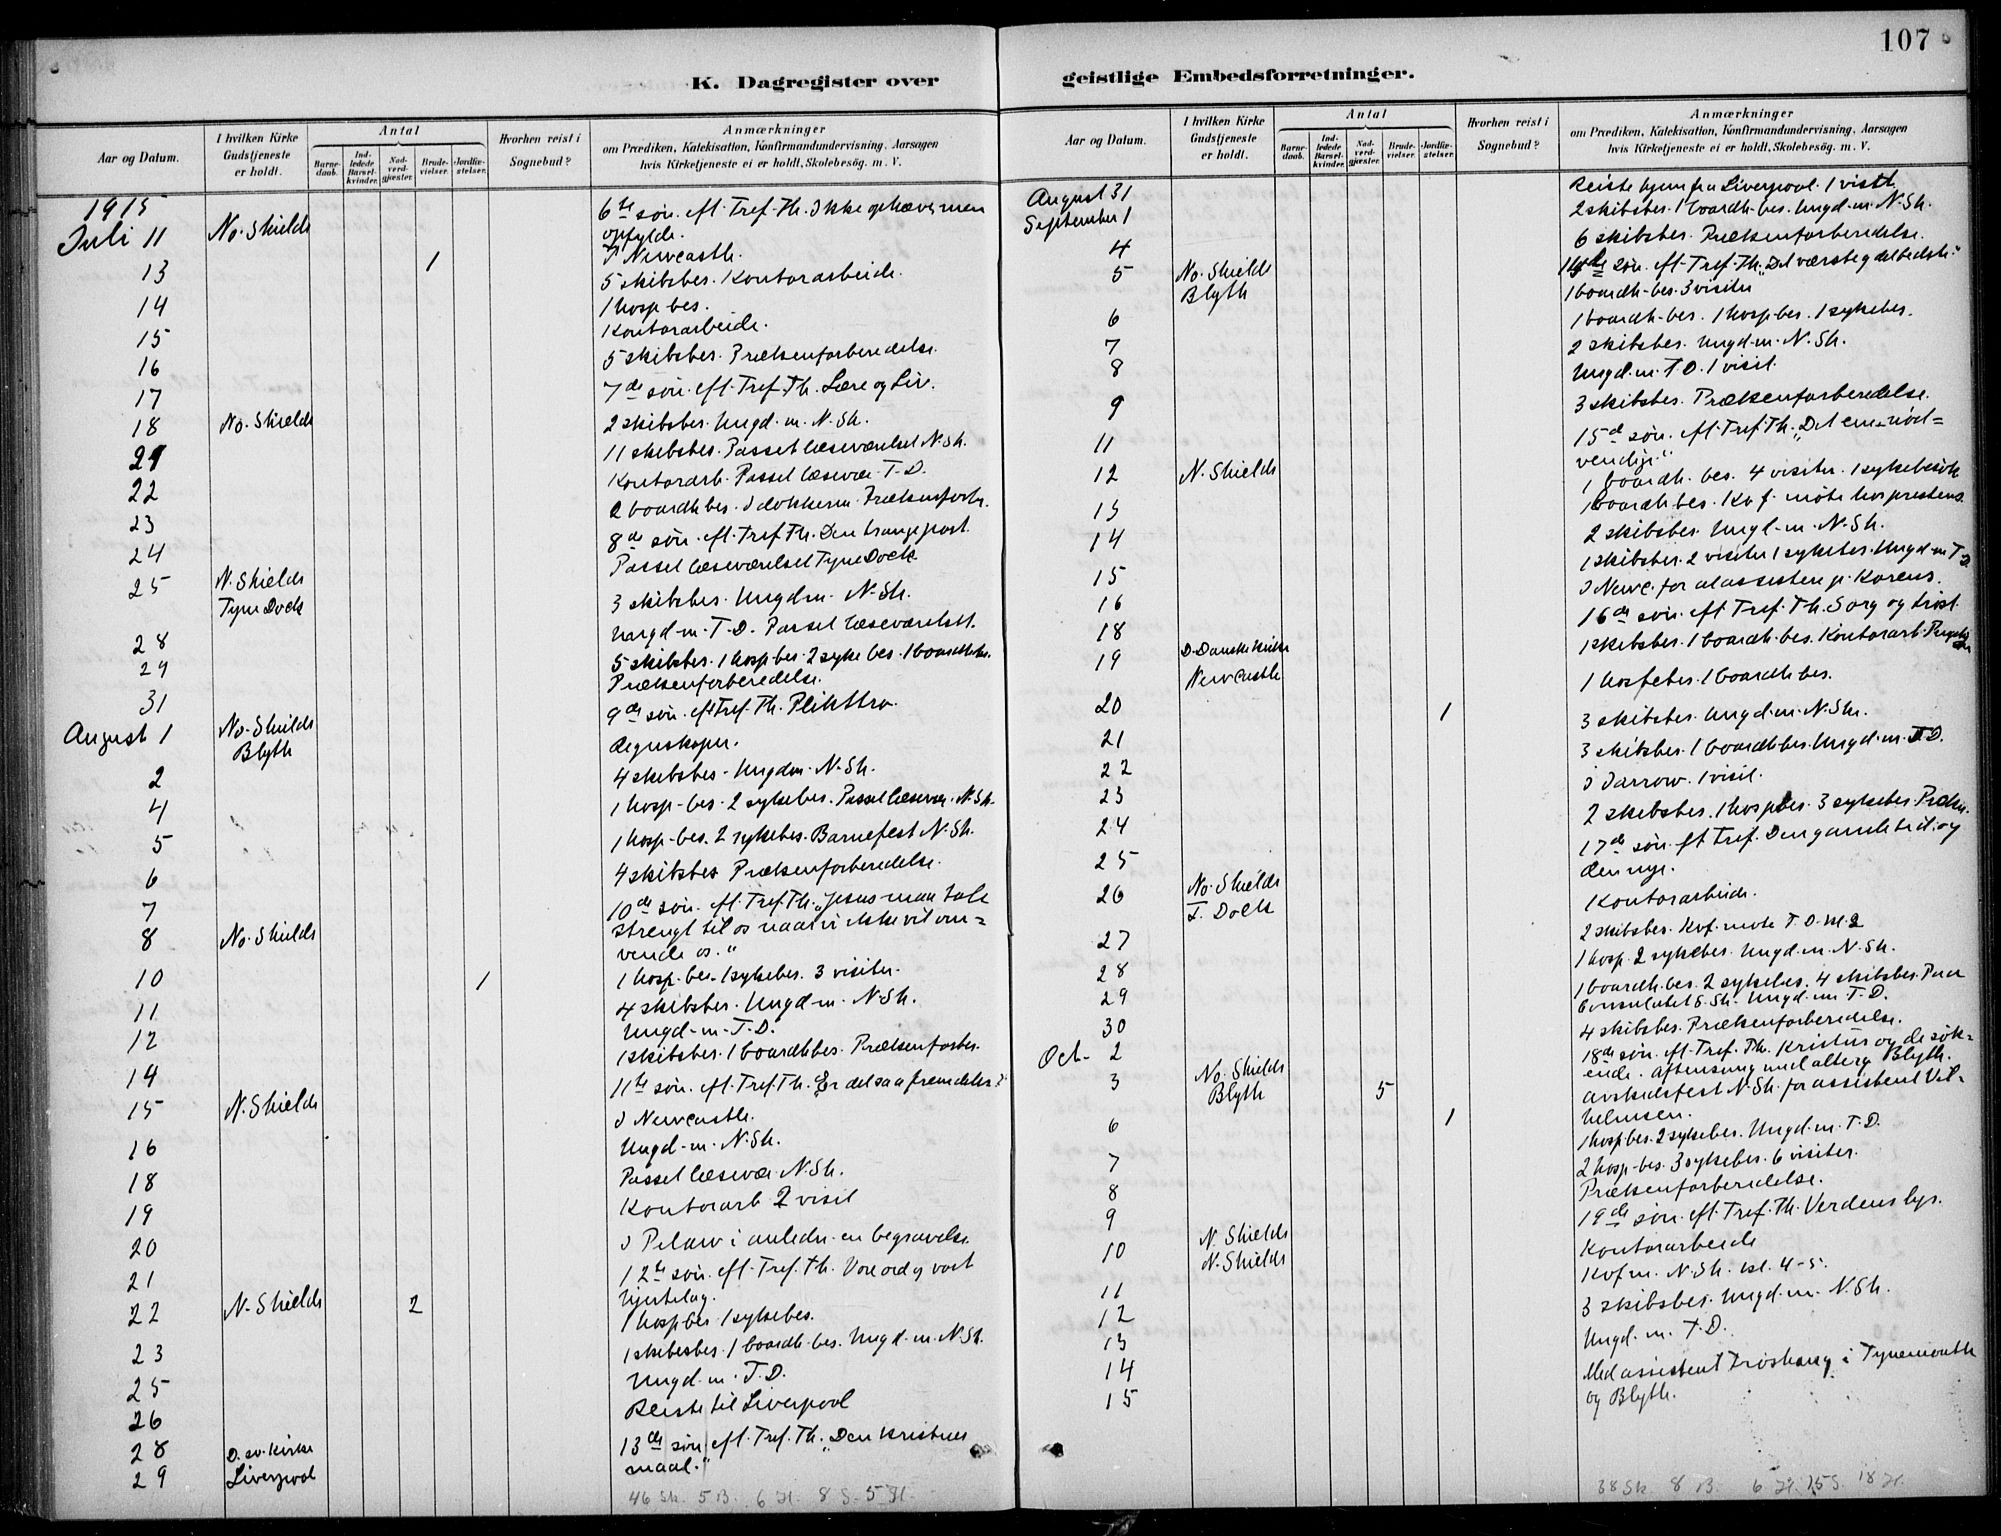 107
K. Dagregister over
geistlige Embedsforretninger.
Aar og Datum.
I hvilken Kirke Gudstjeneste er holdt.
Antal
Barnedaab.
Indledede Barselkvinder.
Nadverdgjæster.
Brudevielser.
Jordfæstelser.
Hvorhen reist i Sognebud?
Anmærkninger
om Prædiken, Katekisation, Konfirmandundervisning, Aarsagen
hvis Kirketjeneste ei er holdt, Skolebesög. m. V.
1915
Juli 11 No. Shields 6te søn. eft. Tref. Th. Ikke ophæve men
opfylde.
13 1 I Newcastle.
14 5 skibsbes. Kontorarbeide.
15 1 hosp bes.
16 Kontorarbeide.
17 5 skibsbes. Prækenforberedelse.
18 No. Shields 7de søn. eft. Tref. Th. Lære og Liv.
21 2 skibsbes. Ungd. m. N. Sh.
22 11 skibsbes. Passet læseværelset N. Sh.
23 Kontorarb. Passet læsevær. T. D.
24 2 boardh bes. I dokkerne. Prækenforb.
25 N. Shields 8de søn. eft. Tref. Th. Den trange port
Tyne Dock Passet læseværelset Tyne Dock
28 3 skibsbes. Ungdm. N. Sh.
29 Ungd-m. T. D. Passet læseværelset.
31 5 skibsbes. 1 hosp bes. 2 syke bes. 1 boardh bes.
Prækenforberedelse.
August 1 No. Shields 9de søn. eft Tref. Th. Plikttro.
Blyth
2 Regnskaper.
4 4 skibsbes. Ungdm. N. Sh.
5 1 hosp-bes. 2 sykebes. Passet læsevær. N. Sh.
6 1 hosp-bes. 2 sykebes. Barnefest N. Sh.
7 4 skibsbes Prækenforberedelse.
8 No. Shields 10de søn. eft. Tref. Th. „Jesus maa tale
strengt til os naar vi ikke vil om=
vende os."
10 1 1 hosp-bes. 1 sykebes. 3 visiter.
11 4 skibsbes. Ungd-m. N. Sh.
12 Ungd-m. T. D.
14 1 skibsbes. 1 boardh bes. Prækenforber.
15 N. Shields 11te søn. eft. Tref. Th. Er det saa fremdeles?
16 I Newcastle.
18 Ungd-m. N. Sh.
19 Passet læsevær N. Sh.
20 Kontorarb 2 visit
21 I Pelaw i anledn. en begravelse
22 N. Shields 2 12te søn. eft. Tref. Th. Vore ord og vort
hjertelag.
23 1 hosp bes 1 sykebes.
25 1 skibsbes. 1 boardh-bes. Ungd. m. N. Sh.
26 Ungd. m. T. D.
28 Reiste til Liverpool
29 D. sv. kirke 13de søn. eft. Tref. Th. „Den kristnes
Liverpool maal."
46 Sk. 5 B. 6 H. 8 S. 5 H.
August 31 Reiste hjem fra Liverpool. 1 visit.
September 1 2 skibsbes. 1 boardh-bes. Ungd-m. N. Sh.
4 6 skibsbes. Prækenforberedelse.
5 No. Shields 14de søn. eft. Tref. Th. „Det værste og det bedste."
Blyth 1 boardh-bes. 3 visiter
6 1 boardh-bes. 1 hosp-bes. 1 sykebes.
7 2 skibsbes. Ungd-m. N. Sh.
8 Ungd. m. T. D. 1 visit.
9 3 skibsbes. Prækenforberedelse.
11 15de søn. eft. Tref. Th. „Det ene nød=
vendige."
12 N. Shields 1 boardh. bes. 4 visiter. 1 sykebesøk
13 1 boardh bes. Kvf. møte hos prestens.
14 2 skibsbes. Ungd-m. N. Sh.
15 1 skibsbes. 2 visiter 1 sykebes. Ungd-m T. D.
16 I Newc.
18 16de søn. eft. Tref. Th. Sorg og trøst.
19 D. Danske kirke 1 skibsbes. 1 boardh-bes. Kontorarb.
Newcastle
20 1 1 hospbes. 1 boardh bes.
21 3 skibsbes. Ungd-m. N. Sh.
22 3 skibsbes. 1 boardh-bes. Ungd-m. T. D.
23 I Jarrow. 1 visit.
24 2 skibsbes. 1 hospbes. 3 sykebes.
25 17de søn. eft Tref. Den gamle tid og
den nye.
26 No. Shields Kontorarbeide.
T. Dock
27 2 skibsbes. Kvf. møte T. D.
28 1 hosp. 2 sykebes. Ungd. m. N. Sh.
29 1 boardh. bes. 2 sykebes. 4 skibsbes. Paa
consulatet S. Sh. Ungd-m T. D.
30 4 skibsbes. Prækenforberedelse.
Oct. 2 18de søn. eft. Tref. Th. Kristus og de søk=
ende. Aftensang med alterg Blyth.
3 No. Shields 5 Avskedsfest N. Sh. for assistent Vil=
Blyth helmsen.
6 1 1 hosp bes. 2 sykebes. Ungd. m. T. D.
7 2 hosp-bes. 3 sykebes. 6 visiter.
8 Prækenforberedelse.
9 19de søn. eft. Tref. Th. Verdens lys.
10 N. Shields Kontorarbeide
N. Shields Kvf m. N. Sh. kl. 4-5.
11 3 skibsbes. Ungd. m. N. Sh.
12 Ungd. m. T. D.
13 Med assistent i Tynemouth
14 og Blyth.
15
38 Sk. 8 B. 6 H. 15 S. 18 H.